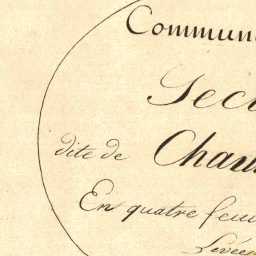 Commun
Sec
dite de Chau
En quatre feui
Levée